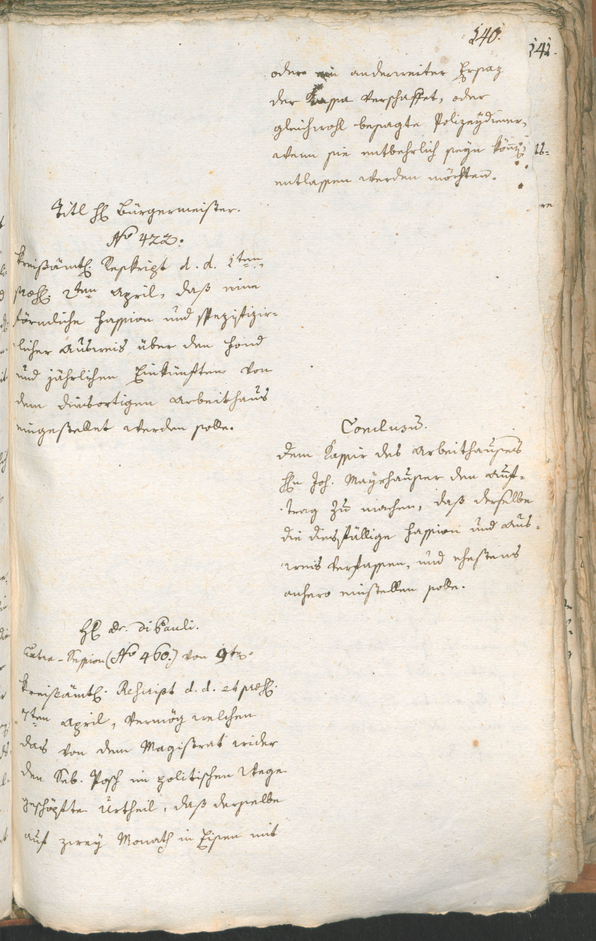 140.
141.
oder ein anderweiter Ersaz
der Kassa verschaffet, oder
gleichwohl besagte Polizeydiener,
wenn sie entbehrlich seyn können,
entlassen werden möchten.
Titl H. Bürgermeister.
No 422.
Kreisämtl. Reskript d. d. 1ten
præs. 2ten April, daß eine
förmliche Fassion und spezifizir-
licher Ausweis über den Fond
und jährlichen Einkünften von
dem diesortigen Arbeithaus
eingestellet werden solle.
Conclusum.
Dem Kassir des Arbeithauses
Hn Joh. Mayrhauser den Auf-
trag zu machen, daß derselbe
die diesfällige Fassion und Aus-
weis verfassen, und ehestens
anhero einstellen solle.
H. Dr. di Pauli.
Extra-Session (No 460.) von 9t
Kreisämtl. Rescript d. d. et præs.
7ten April, vermög welchen
das von dem Magistrat wider
den Seb. Posch im politischen Wege
geschöpfte Urtheil, daß derselbe
auf zwey Monath in Eisen mit